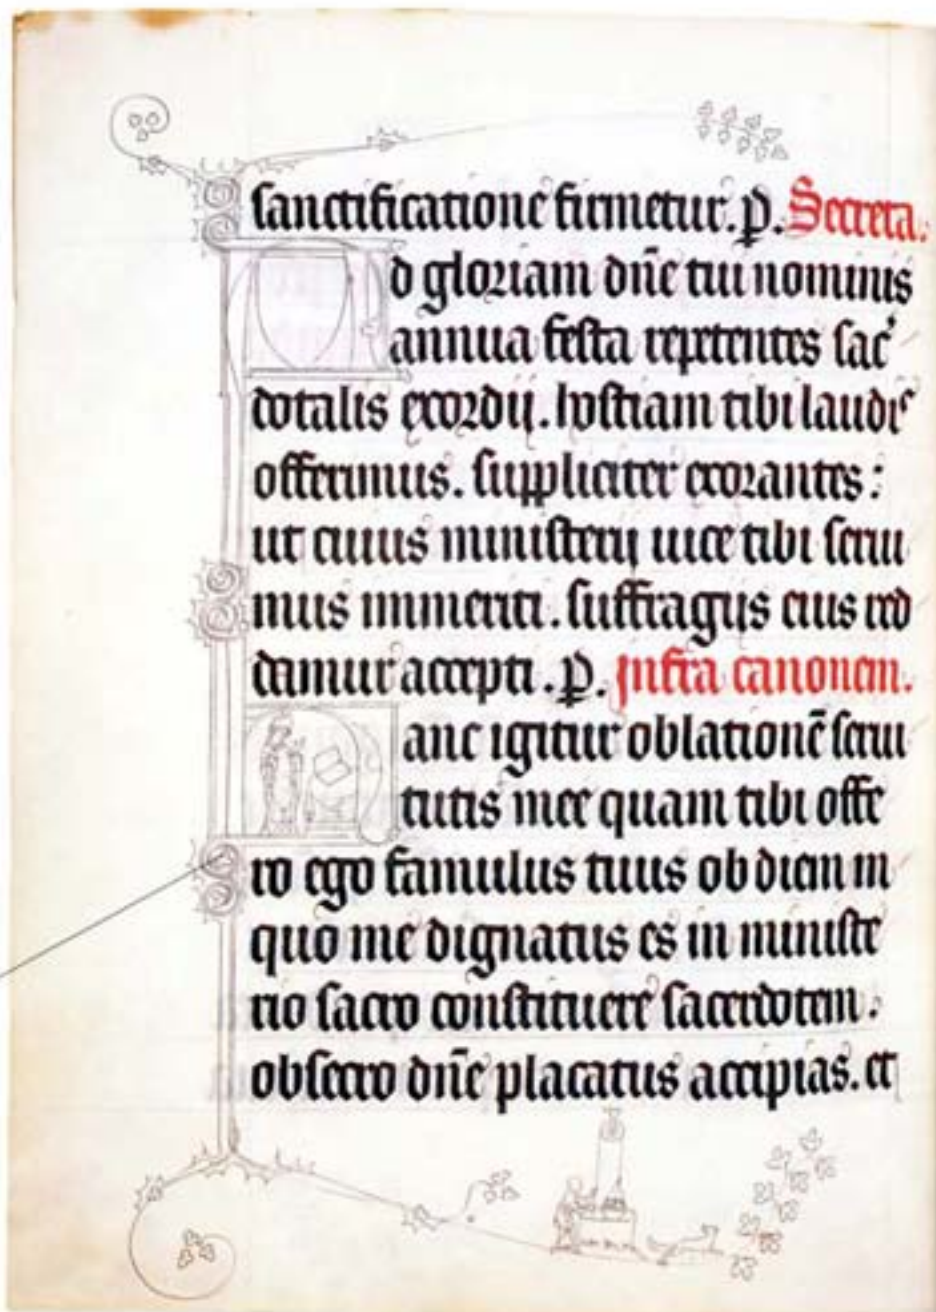 sanctificatione firmetur. p. Secreta.
d gloriam dñe tui nominis
annua festa repetentes sac̉
dotalis exordij. hostiam tibi laudis
offerimus. suppliciter exorantes :
ut cuius ministerij uice tibi serui
mus immeriti. suffragijs eius red
damur accepti. p. Infra canonem.
anc igitur oblationē serui
tutis mee quam tibi offe
ro ego famulus tuus ob diem in
quo me dignatus es in ministe
rio sacro constituere sacerdotem :
obsecro dñe placatus accipias. et